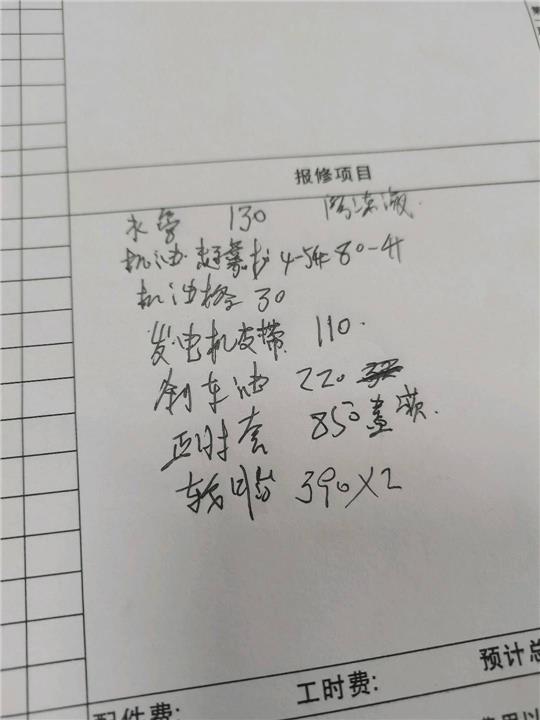 报修项目
水管 130 防冻液
机油 超豪护 4-5升 80-升
机油格 30
发电机皮带 110
刹车油 220
正时套 850 盖茨
轮胎 390X2
预计总
工时费:
配件费: